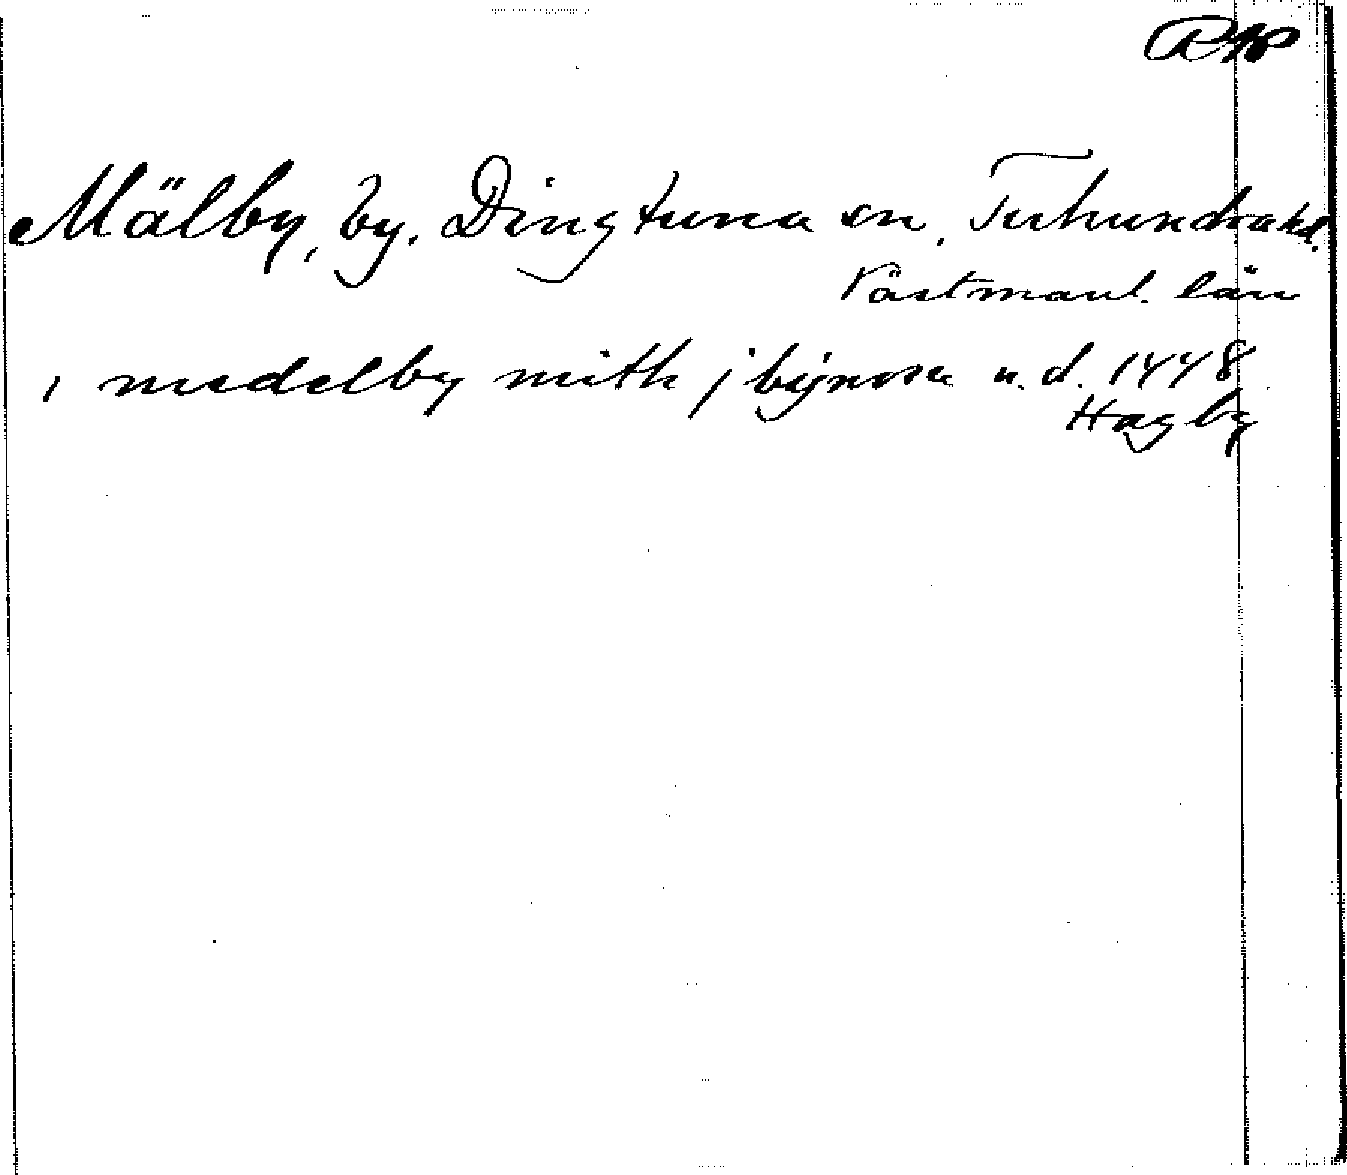 RAP
Mälby, by. Dingtuna sn, Tuhundra hd.
Västmanl. län
i medelby mith j bynom u. d. 1448
Hagby